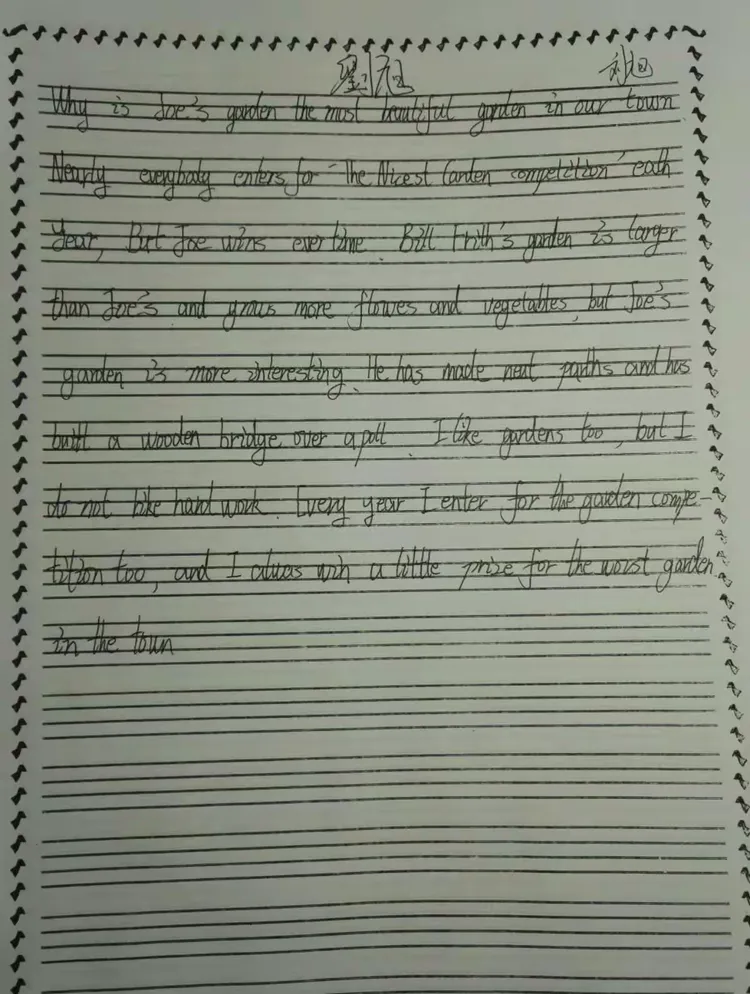 Why is Joe's garden the most beautiful garden in our town
Nearly everybody enters for "The Nicest Garden competition" each
year, But Joe wins ever time. Bill Frith's garden is larger
than Joe's and grows more flowes and vegetables, but Joe's
garden is more interesting. He has made neat paths and has
built a wooden bridge over a poll. I like gardens too, but I
do not like hard work. Every year I enter for the garden compe-
tition too, and I aluas win a little prize for the worst garden
in the town